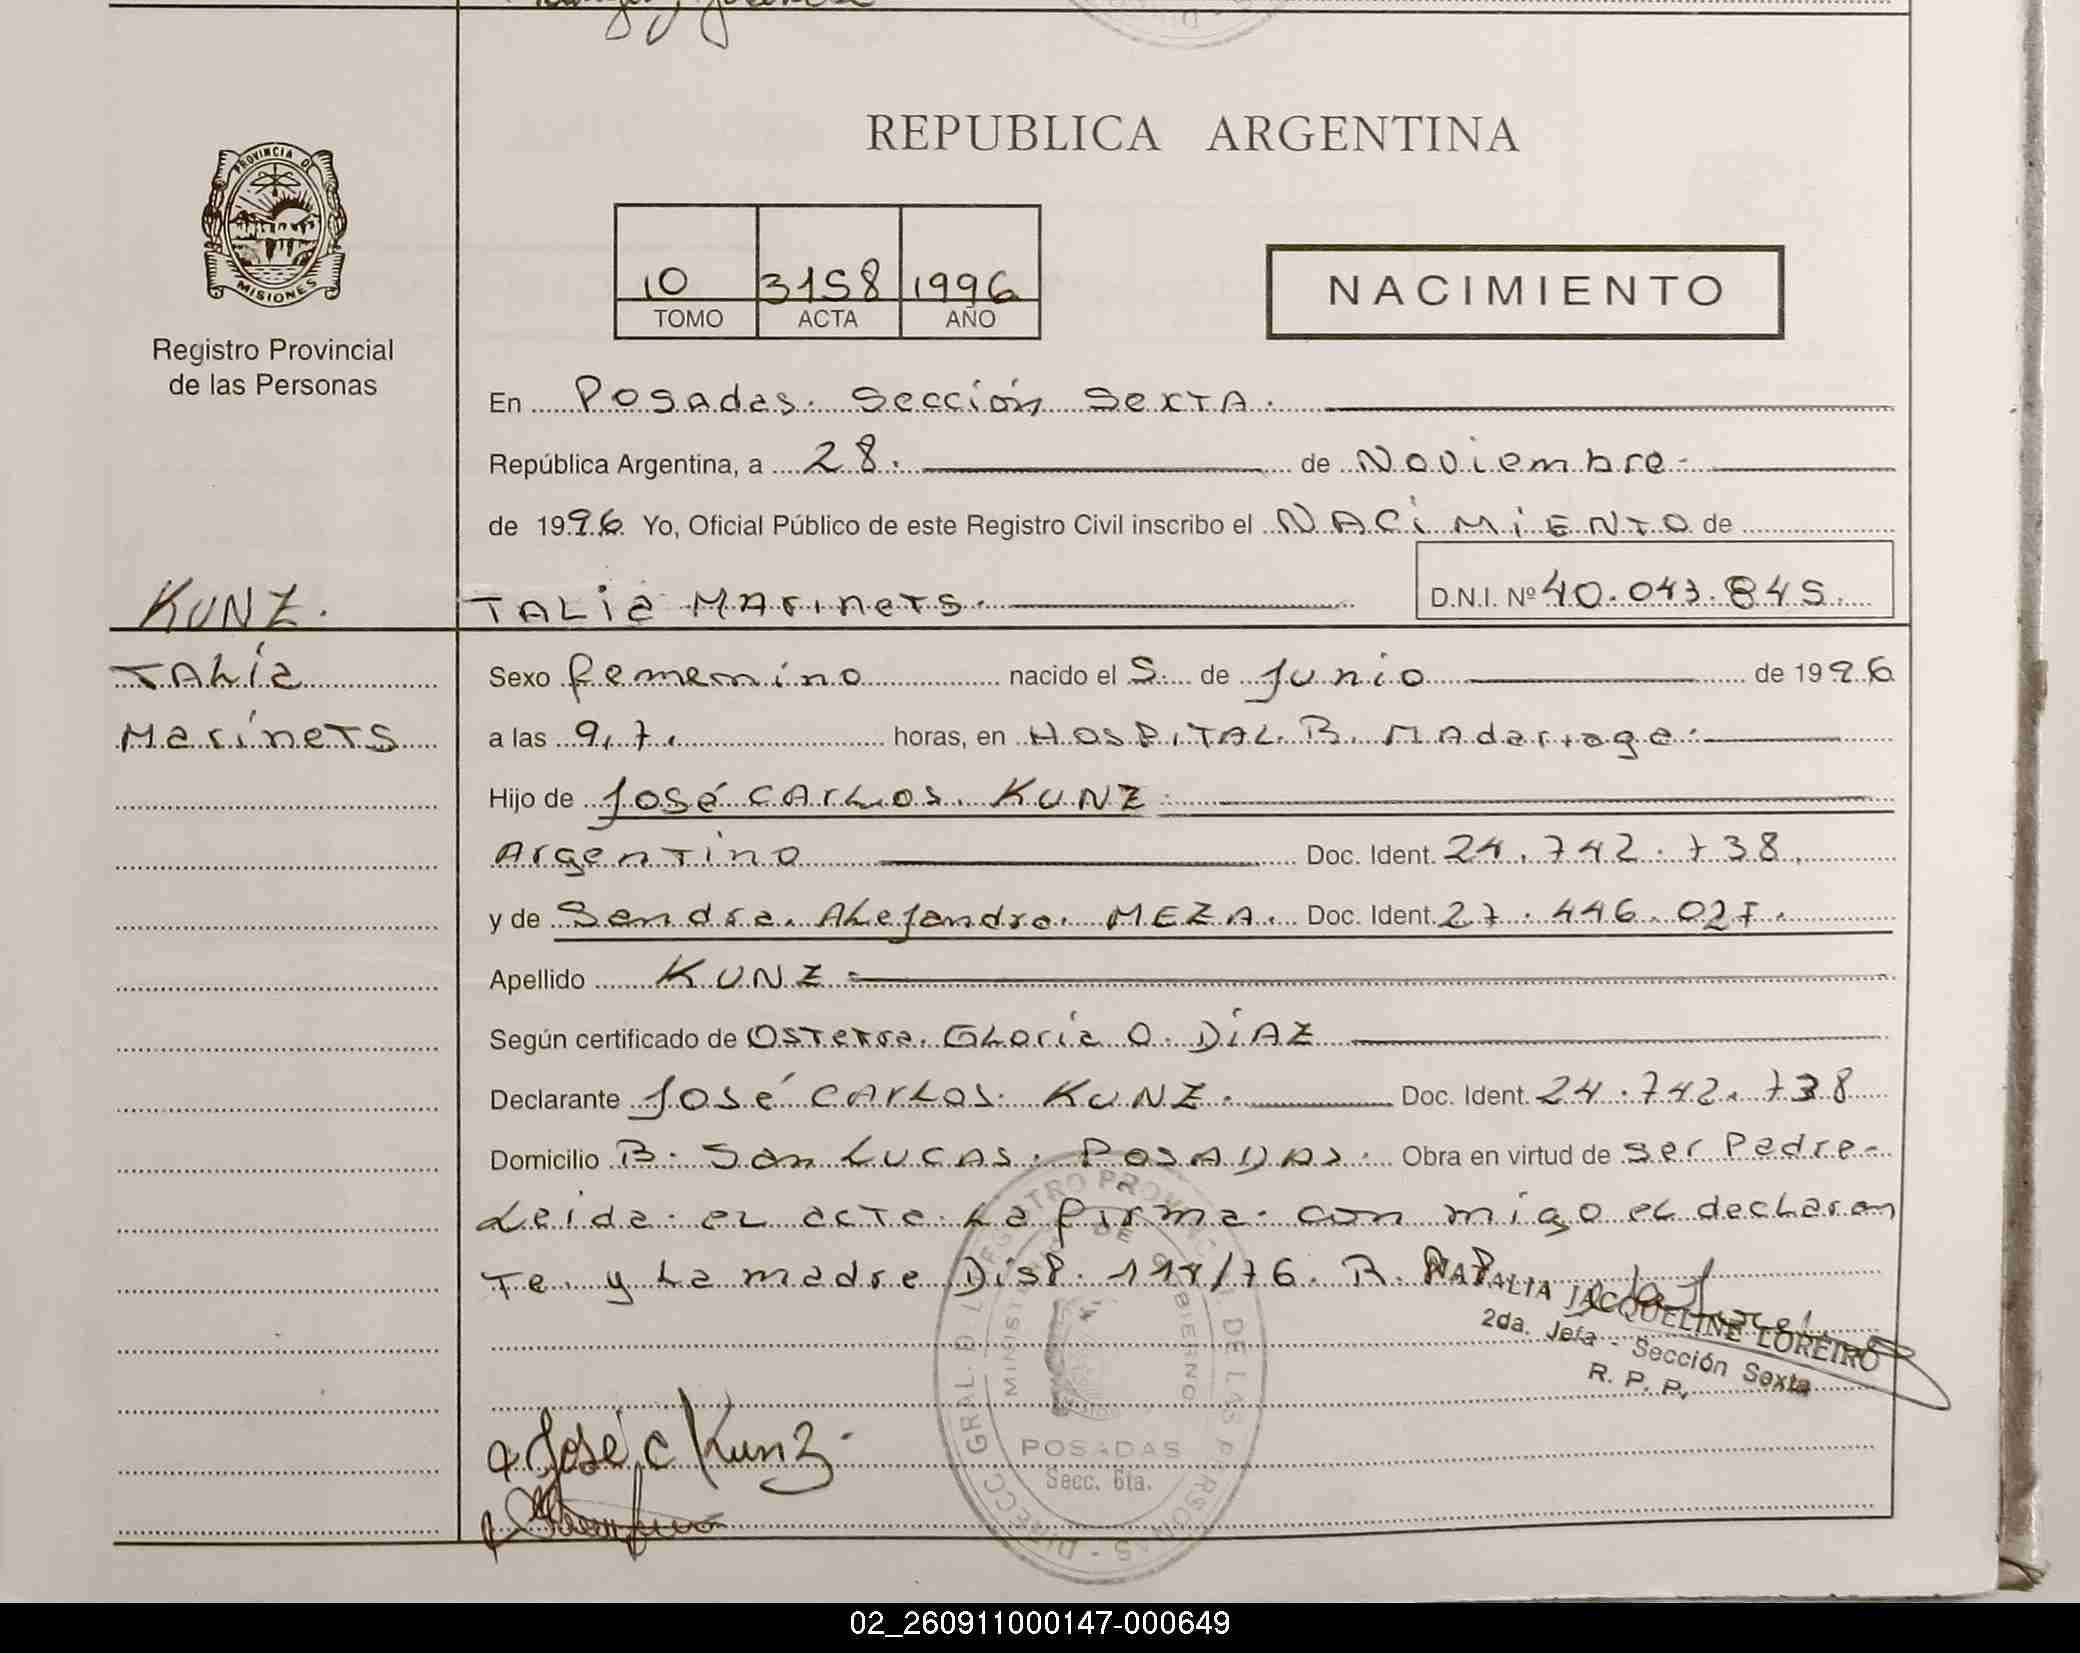 REPUBLICA ARGENTINA
PROVINCIA DE
MISIONES
Registro Provincial
de las Personas
10 3158 1996
TOMO ACTA AÑO
NACIMIENTO
En Posadas. Sección Sexta.
República Argentina, a 28. de Noviembre-
de 1996 Yo, Oficial Público de este Registro Civil inscribo el NACIMIENTO de
KUNZ.
TALIA MARINETS. D.N.I. Nº 40.043.845.
TALía
Marinets
Sexo femenino nacido el 5 de Junio de 1996
a las 9,7. horas, en HOSPITAL R. Madariaga.
Hijo de José CARLOS. KUNZ
Argentino Doc. Ident. 24.742.738.
y de Sandra. Alejandra. MEZA. Doc. Ident. 27.446.027.
Apellido KUNZ
Según certificado de Ostetra. Gloria O. DíAZ
Declarante José CARLOS. KUNZ. Doc. Ident. 24.742.738
Domicilio B. San LUCAS. POSADAS. Obra en virtud de ser Padre-
Leida el acta la firma con migo el declaran
Te. y La madre Disp. /76. R. P. P.
NATALIA JACQUELINE LOREIRO
2da. Jefa - Sección Sexta
R. P. P.
José C Kunz.
DIRECC. GRAL. DEL REGISTRO PROVINCIAL DE LAS PERSONAS
MINISTERIO DE GOBIERNO
POSADAS
Secc. 6ta.
02_260911000147-000649